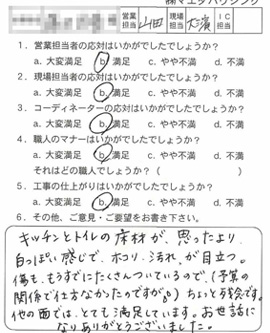 ㈱マエダハウジング
営業担当 山田 現場担当 大濱 IC担当
1．営業担当者の応対はいかがでしたでしょうか？
a. 大変満足 b. 満足 c. やや不満 d. 不満
2．現場担当者の応対はいかがでしたでしょうか？
a. 大変満足 b. 満足 c. やや不満 d. 不満
3．コーディネーターの応対はいかがでしたでしょうか？
a. 大変満足 b. 満足 c. やや不満 d. 不満
4．職人のマナーはいかがでしたでしょうか？
a. 大変満足 b. 満足 c. やや不満 d. 不満
それはどの職人でしょうか？（ ）
5．工事の仕上がりはいかがでしたでしょうか？
a. 大変満足 b. 満足 c. やや不満 d. 不満
6．その他、ご意見・ご要望をお書き下さい。
キッチンとトイレの床材が、思ったより
白っぽい感じで、ホコリ、汚れ、が目立つ。
傷も、もうすでにたくさんついているので、（予算の
関係で仕方なかったのですが。。）ちょっと残念です。
他の面では、とても満足しています。お世話に
なりありがとうございました。